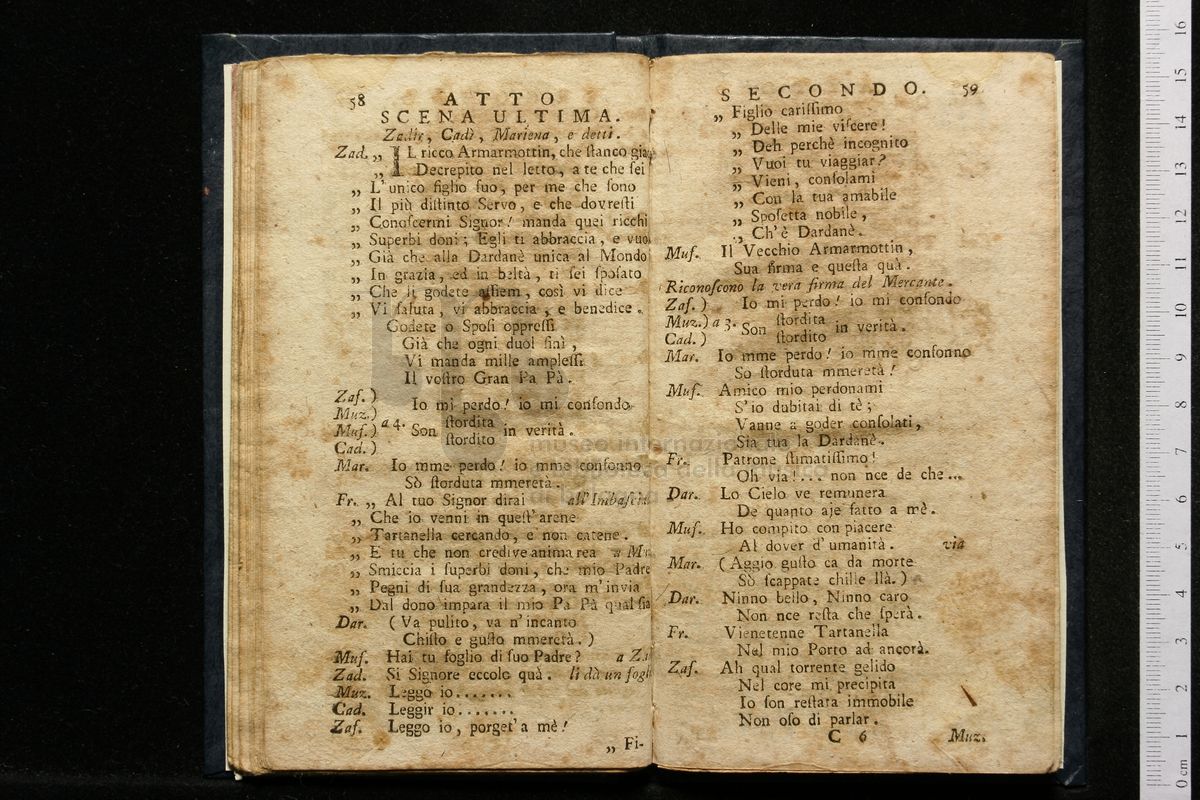 58 ATTO
SCENA ULTIMA.
Zadir, Cadì, Mariena, e detti.
Zad. „ IL ricco Armarmottin, che ſtanco già
„ Decrepito nel letto, a te che ſei
„ L'unico figlio ſuo, per me che ſono
„ Il più diſtinto Servo, e che dovreſti
„ Conoſcermi Signor! manda quei ricchi
„ Superbi doni; Egli ti abbraccia, e vuol
„ Già che alla Dardanè unica al Mondo
„ In grazia, ed in beltà, ti ſei ſpoſato
„ Che li godete aſſiem, così vi dice
„ Vi ſaluta, vi abbraccia, e benedice.
Godete o Spoſi oppreſſi
Già che ogni duol finì,
Vi manda mille ampleſſi
Il voſtro Gran Pa Pà.
Zaf. )
Muz.)
Muſ.) a 4.
Cad. )
Io mi perdo! io mi confondo
Son ſtordita
ſtordito in verità.
Mar. Io mme perdo! io mme confonno
Sò ſtorduta mmeretà.
Fr. „ Al tuo Signor dirai all'Imbaſcia
„ Che io venni in queſt'arene
„ Tartanella cercando, e non catene.
„ E tu che non credive anima rea a Mu
„ Smiccia i ſuperbi doni, che mio Padre
„ Pegni di ſua grandezza, ora m'invia
„ Dal dono impara il mio Pa Pà qual ſia
Dar. (Va pulito, va n'incanto
Chiſto e guſto mmeretà.)
Muſ. Hai tu foglio di ſuo Padre? a Za
Zad. Si Signore eccolo quà. li dà un fogl
Muz. Leggo io.......
Cad. Leggir io.......
Zaf. Leggo io, porget'a mè!
„ Fi-
SECONDO. 59
„ Figlio cariſſimo
„ Delle mie viſcere!
„ Deh perchè incognito
„ Vuoi tu viaggiar?
„ Vieni, conſolami
„ Con la tua amabile
„ Spoſetta nobile,
„ Ch'è Dardanè.
Muſ. Il Vecchio Armarmottin,
Sua firma e queſta quà.
Riconoſcono la vera firma del Mercante.
Zaf. )
Muz.) a 3.
Cad. )
Io mi perdo! io mi confondo
Son ſtordita
ſtordito in verità.
Mar. Io mme perdo! io mme confonno
So ſtorduta mmeretà!
Muſ. Amico mio perdonami
S'io dubitai di tè;
Vanne a goder conſolati,
Sia tua la Dardanè.
Fr. Patrone ſtimatiſſimo!
Oh via!... non nce de che...
Dar. Lo Cielo ve remunera
De quanto aje fatto a mè.
Muſ. Ho compito con piacere
Al dover d'umanità. via
Mar. (Aggio guſto ca da morte
Sò ſcappate chille llà.)
Dar. Ninno bello, Ninno caro
Non nce reſta che ſperà.
Fr. Vienetenne Tartanella
Nel mio Porto ad ancorà.
Zaf. Ah qual torrente gelido
Nel core mi precipita
Io ſon reſtata immobile
Non oſo di parlar.
C 6 Muz.